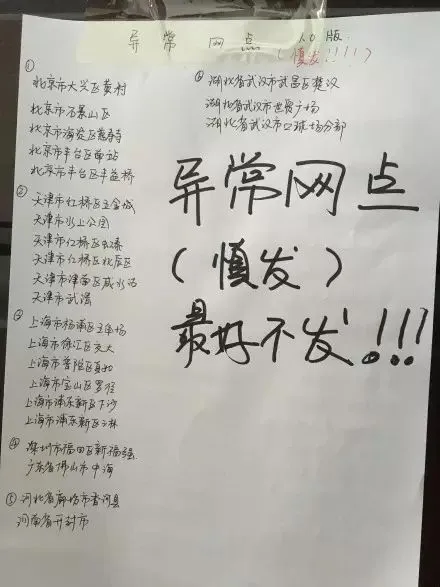 异常网点 1.0版
(慎发!!!!)
①
北京市大兴区黄村
北京市石景山区
北京市海淀区慈寿寺
北京市丰台区南站
北京市丰台区丰益桥
② 天津市红桥区
天津市水上公园
天津市红桥区
天津市红桥区北辰区
天津市津南区咸水沽
天津市武清
③ 上海市杨浦区五角场
上海市徐汇区交大
上海市普陀区真如
上海市宝山区罗泾
上海市浦东新区下沙
上海市浦东新区三林
④ 深圳市福田区新福强
广东省佛山市中海
⑤ 河北省廊坊市香河县
河南省开封市
⑥ 湖北省武汉市武昌区楚汉
湖北省武汉市世贸广场
湖北省武汉市口球场分部
异常网点
(慎发)
最好不发!!!